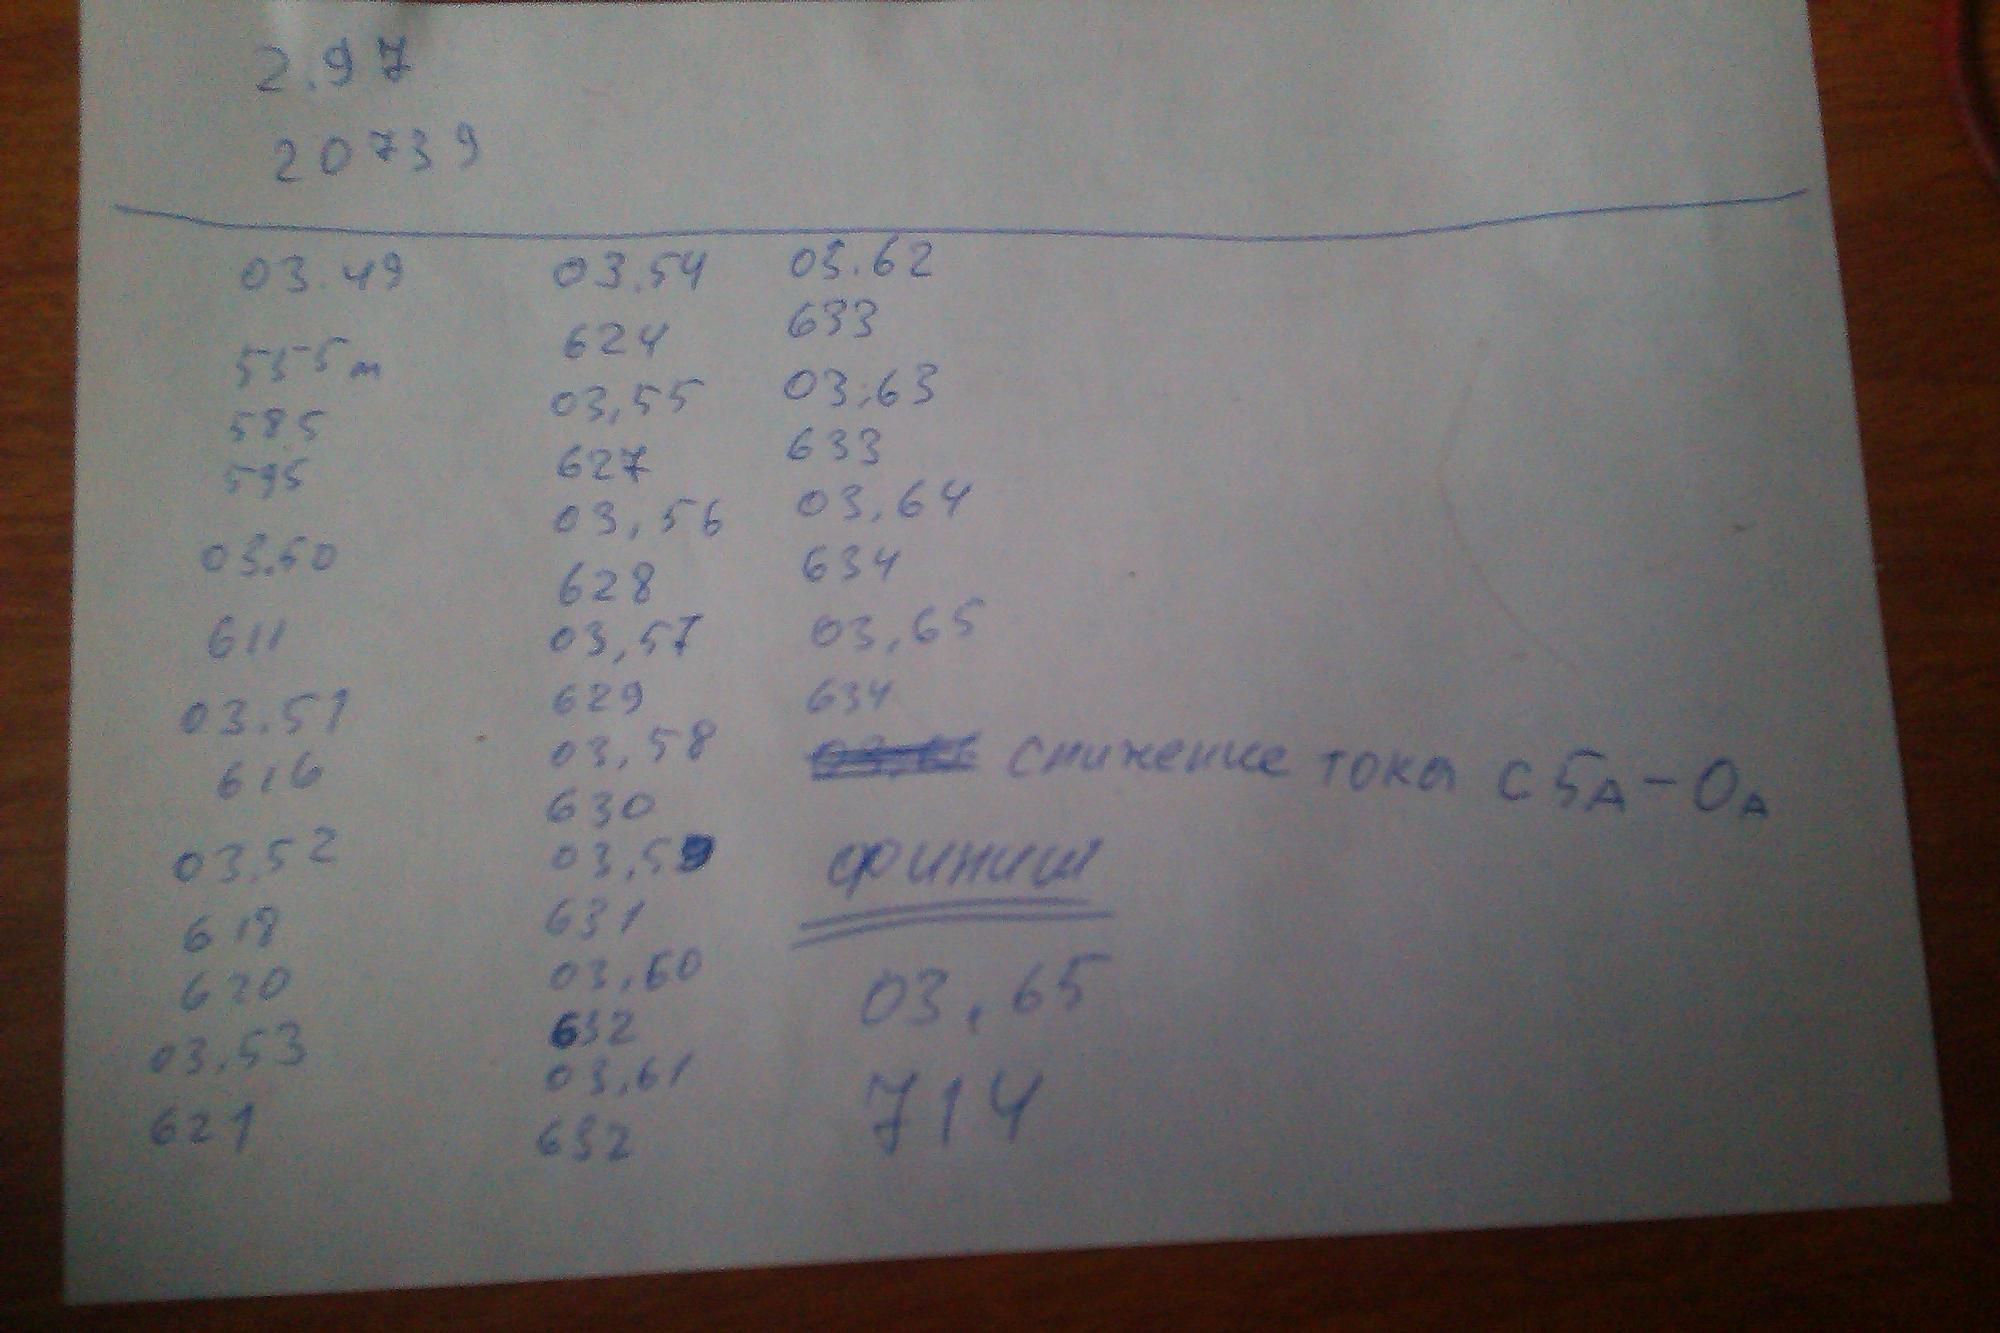 2.97
20739
03.49
555 m
585
595
03.50
611
03.51
616
03.52
618
620
03.53
621
03.54
624
03,55
627
03,56
628
03,57
629
03,58
630
03,59
631
03,60
632
03,61
632
03.62
633
03,63
633
03,64
634
03,65
634
снижение тока с 5А - 0А
финиш
03,65
714